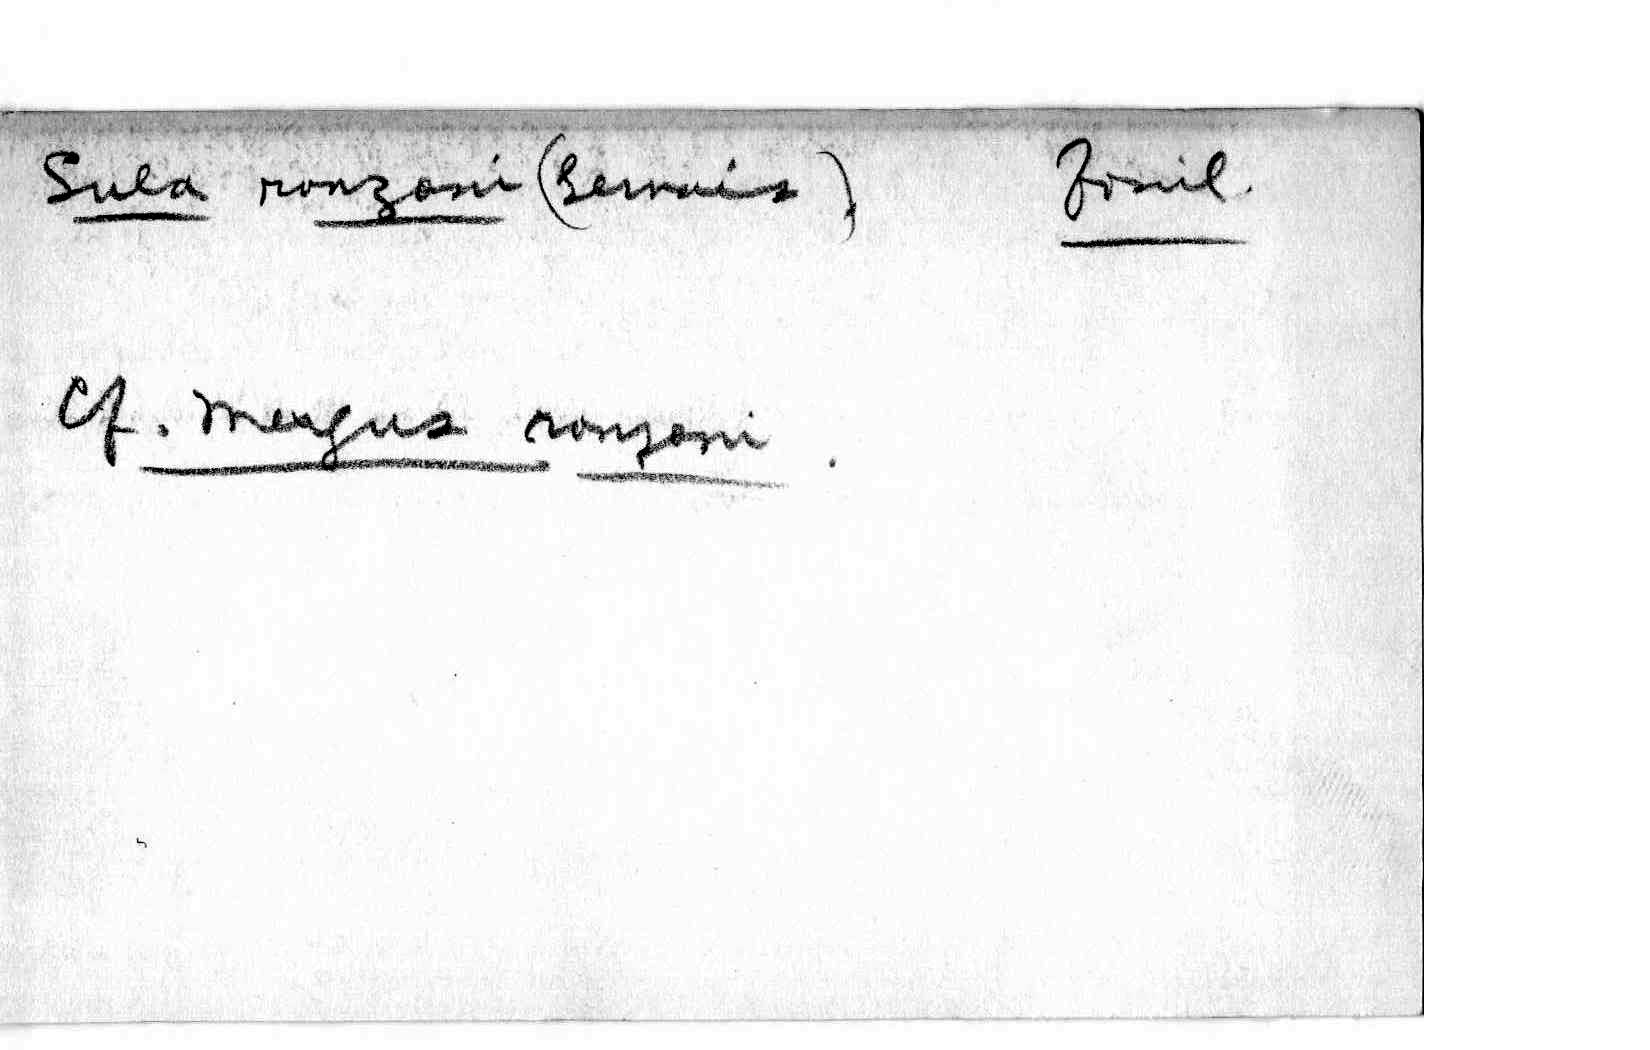 Sula ronzoni (Gervais) Fossil
Cf. Mergus ronzoni.